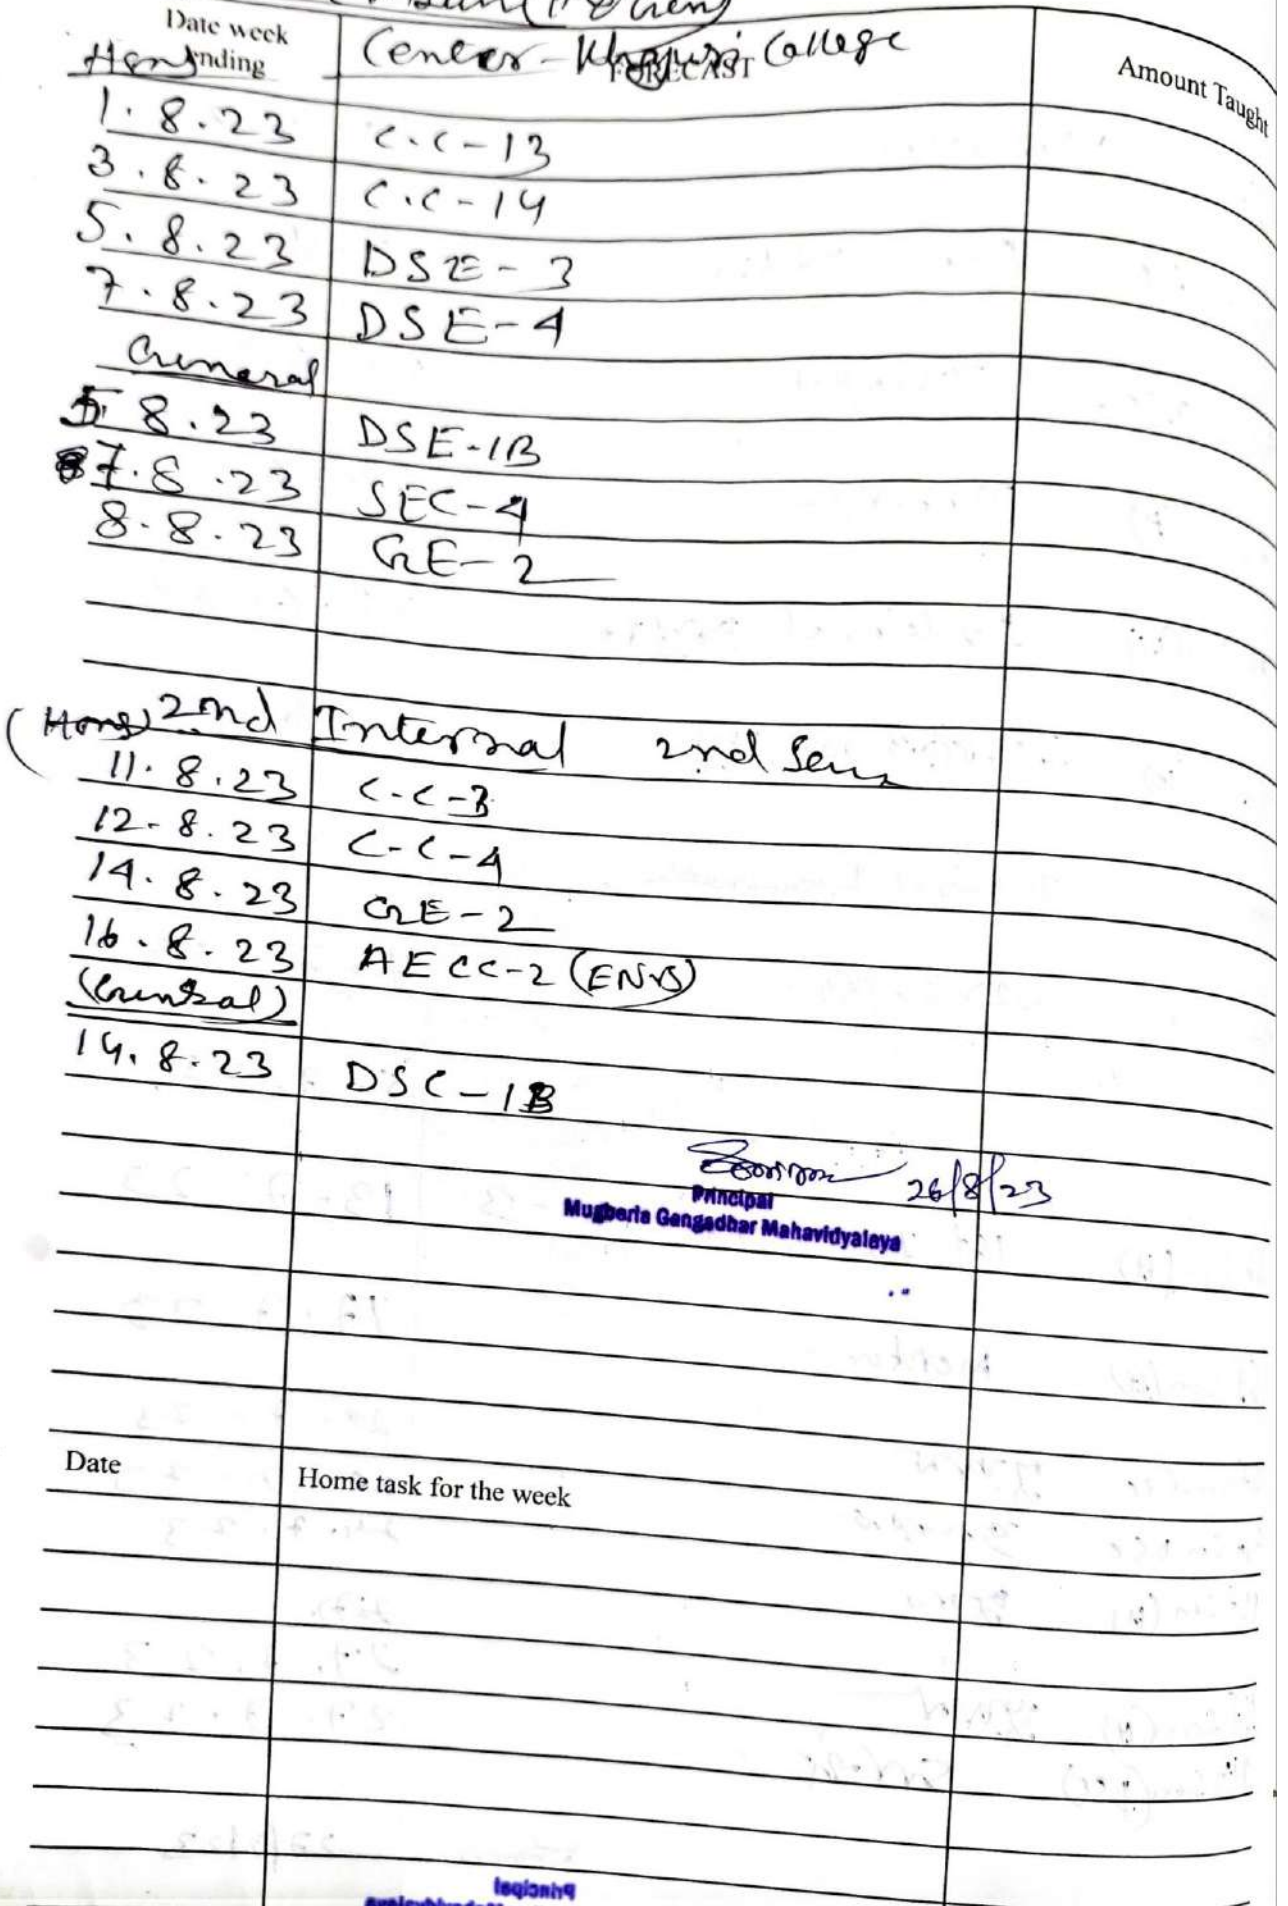 Date week ending FORECAST Amount Taught
Hons Center - Khejuri College
1.8.23 C.C-13
3.8.23 C.C-14
5.8.23 DSE-3
7.8.23 DSE-4
General
5 8.23 DSE-1B
7.8.23 SEC-4
8.8.23 GE-2
(Hons) 2nd Internal 2nd Sem
11.8.23 C.C-3
12-8.23 C-C-4
14.8.23 GE-2
16.8.23 AECC-2 (ENVS)
(General)
14.8.23 DSC-1B
26/8/23
Principal
Mugberia Gangadhar Mahavidyalaya
Date Home task for the week
Principal